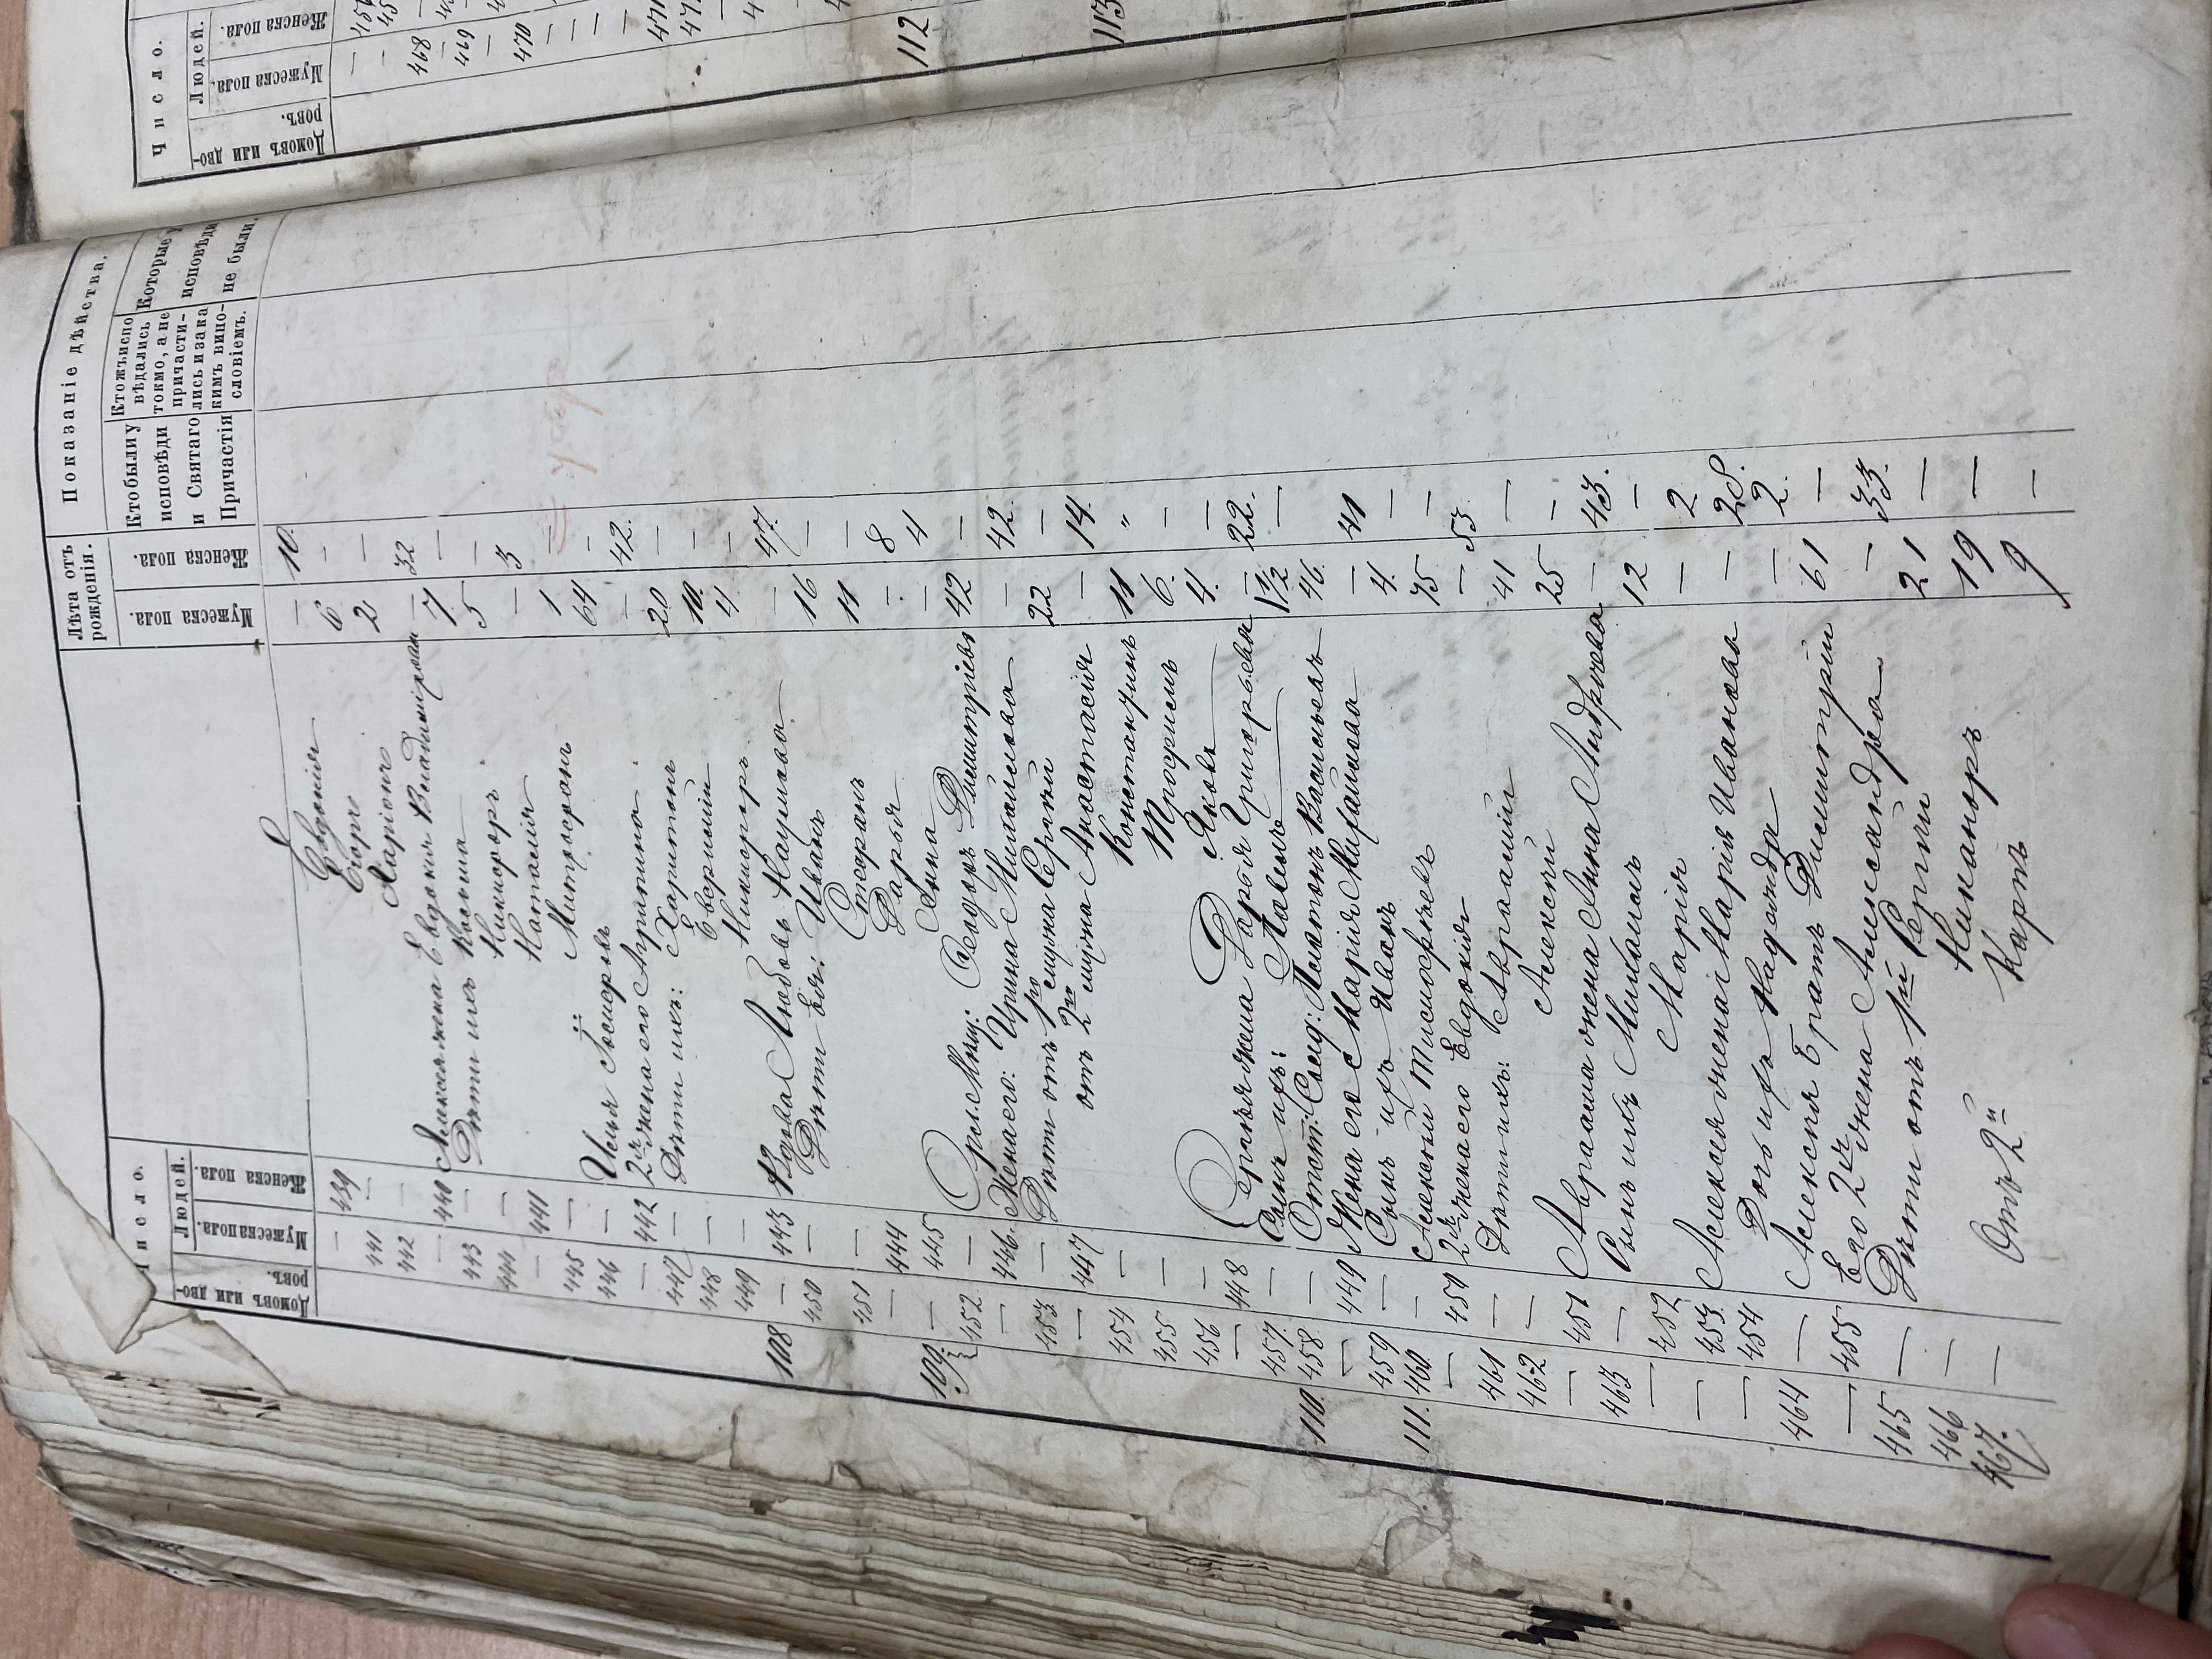 Число.
Людей.
Домовъ или дворовъ.
Мужеска пола.
Женска пола.
Лѣта отъ рожденія.
Мужеска пола.
Женска пола.
Показаніе дѣйства.
Кто были у исповѣди и Святаго Причастія
Кто жъ исповѣдались токмо, а не причастились и за какимъ винословіемъ.
Которые у исповѣди не были.
— 439 Евдокія — 10.
441 — Егоръ 6 —
442 — Ларіонъ 2 —
— 440 Алексея жена Евдокия Владимирова — 32
443 — Дѣти ихъ Козьма 7 —
444 — Никифоръ 5 —
— 441 Наталия — 3
445 — Митрофанъ 1 — умеръ
446 — Илья Іосифовъ 64 —
— 442 2я жена его Агрипина — 42.
447 — Дѣти ихъ: Харитонъ 20 —
448 — Евгений 10. —
449 — Никифоръ 4 —
108 — 443 Вдова Любовь Наумова — 47.
450 — Дѣти ея: Иванъ 16 —
451 — Стефанъ 11 —
— 444 Дарья — 8
— 445 Анна — 4
109. 452 — Ѳеодоръ Димитріевъ 42 —
— 446 Жена его: Ирина Михайлова — 42.
453 — Дѣти отъ 1го Сергей 22 —
— 447 отъ 2го Анастасія — 14.
454 — Константинъ 11 "
455 — Трофимъ 6. —
456 — Яковъ 4. —
— 448 жена Дарья Григорьева — 22.
457. — Сынъ ихъ: Павелъ 1½ —
110. 458 — Платонъ Васильевъ 46. —
— 449 Жена его Марія Михайлова — 41
459 — Сынъ ихъ Иванъ 4. —
111. 460 — Алексей Тимофеевъ 75 —
— 450 2я жена его Евдокія — 53
461 — Дѣти ихъ: Авраамій 41 —
462 — Алексей 25 —
— 451 Авраама жена Анна Андреева — 43.
463 — Сынъ ихъ Михаилъ 12 —
— 452 Марія — 2
— 453. Алексея жена Марія Иванова — 28.
— 454 Дочь ихъ Надежда — 2.
464 — Алексея братъ Димитрій 61 —
— 455 Его 2я жена Александра — 33.
465 — Дѣти отъ 1й Сергий 21 —
466 — Никаноръ 19 —
467. — Отъ 2й Карпъ 9 —
Число.
Людей.
Домовъ или дворовъ.
Мужеска пола.
Женска пола.
468
469
470
112
113